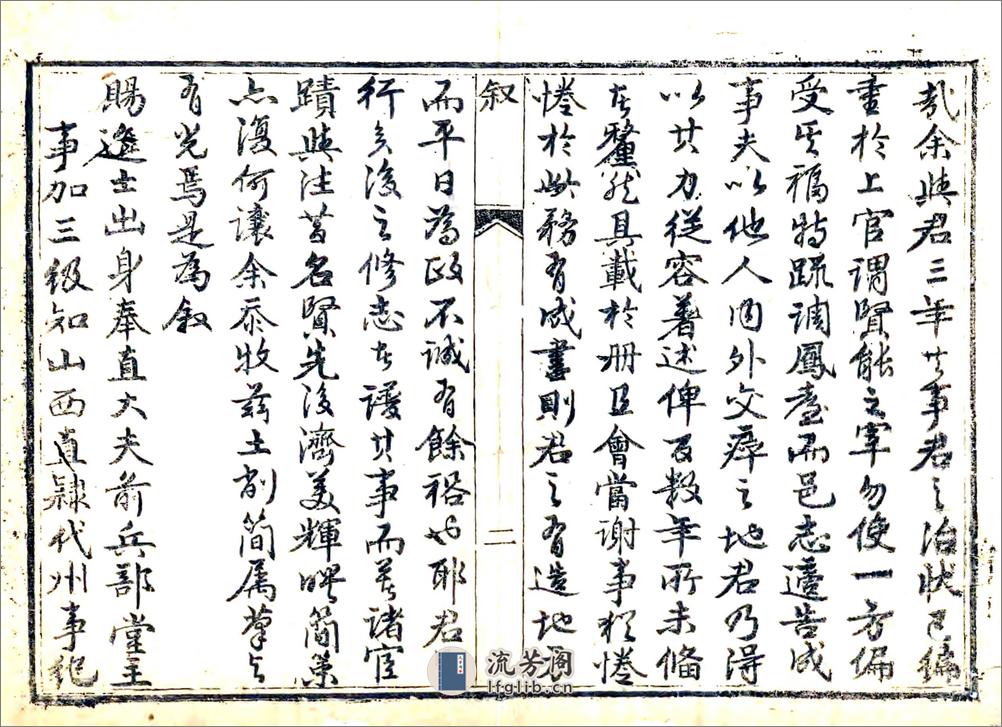 哉余與君三年共事君之治狀已編
重於上官謂賢能之宰勿使一方偏
受其福特疏調鳳臺而邑志適告成
事夫以他人內外交瘁之地君乃得
以其力從容著述俾百數年所未備
者釐然具載於冊且會當謝事猶惓
惓於此務有成書則君之有造地方
叙
二
而平日為政不誠有餘裕也耶君
行矣後之修志者讀其事而某諸宦
蹟與往昔名賢先後濟美輝暎簡策
亦復何讓余忝牧茲土削簡属草與
有光焉是為叙
賜進士出身奉直大夫前兵部堂主
事加三級知山西直隸代州事紀
流芳閣
lfglib.cn